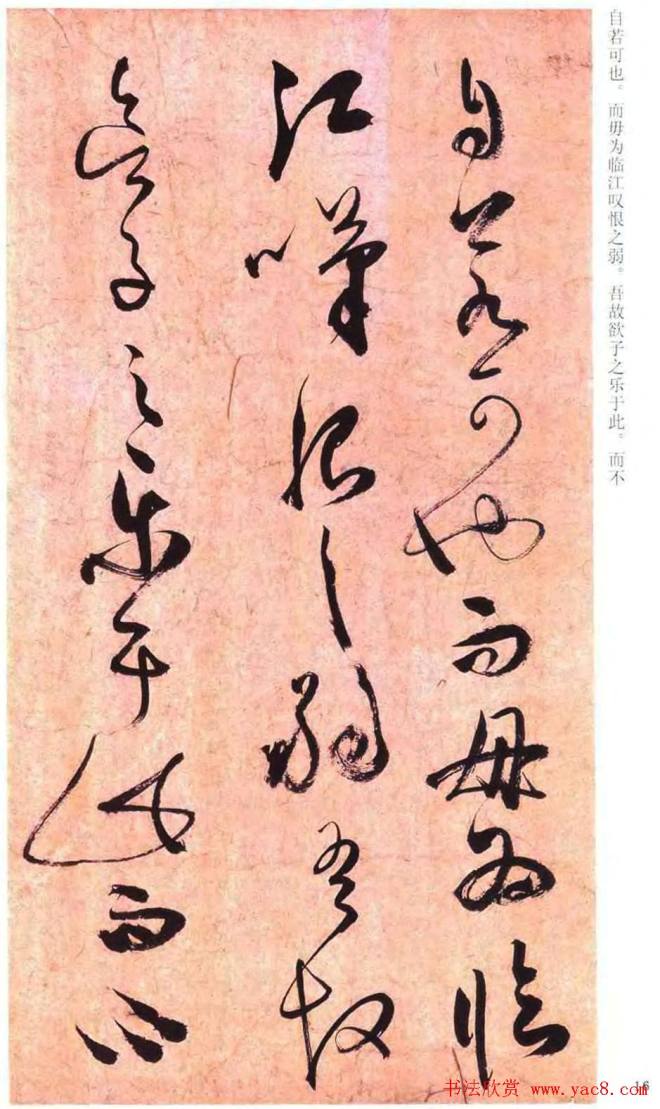 自若可也而毋为临
江嘆恨之弱吾故
欲子之樂于此而不
自若可也。而毋为临江叹恨之弱。吾故欲子之乐于此。而不
16
书法欣赏 www.yac8.com